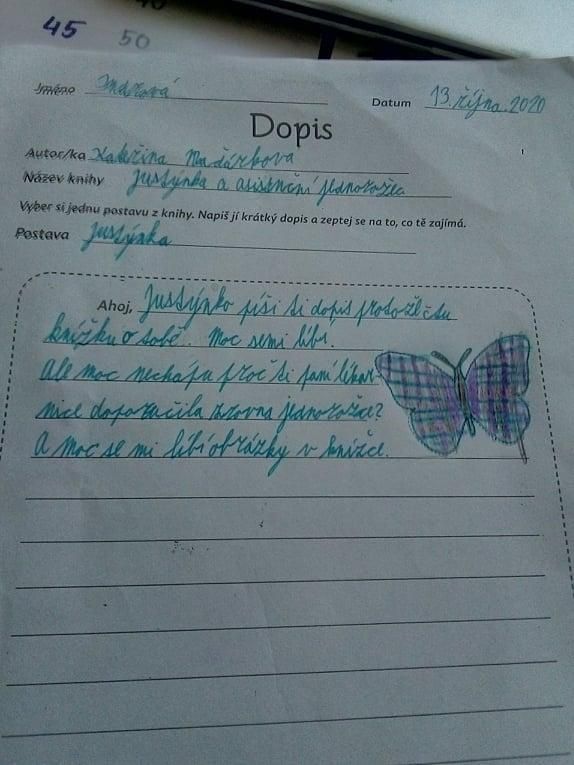 45 50
Jméno
Datum 13. října. 2020
Dopis
Autor/ka Kateřina Maďárkova
Název knihy Justýnka a asistenční jednorožec
Vyber si jednu postavu z knihy. Napiš jí krátký dopis a zeptej se na to, co tě zajímá.
Postava Justýnka
Ahoj, Justýnko píši ti dopis protože čtu
knížku o tobě. Moc semi líbí.
Ale moc nechápu proč ti paní lékař
nice doporučila zrovna jednorožce?
A moc se mi líbí obrázky v knížce.